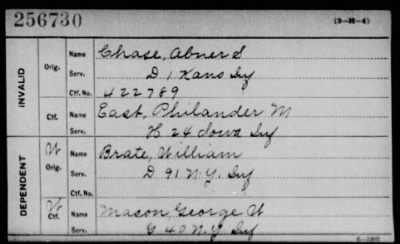 256730 (3-H-4)
INVALID
Orig.
Name Chase, Abner S
Serv. D 1 Kans Inf
Ctf. No. 422789
Ctf.
Name East, Philander M
Serv. H 24 Iowa Inf
DEPENDENT
W Orig.
Name Brate, William
Serv. D 91 N.Y. Inf
Ctf. No.
W Ctf.
Name Mason, George W
Serv. G 40 N.Y. Inf